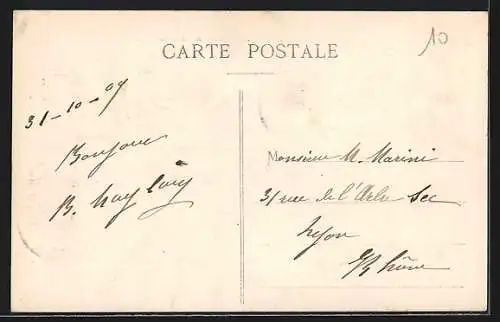 CARTE POSTALE
10
31-10-07
Bonjour
B.
Monsieur M. Marini
31 rue de l'Arbre Sec
Lyon
Rhône